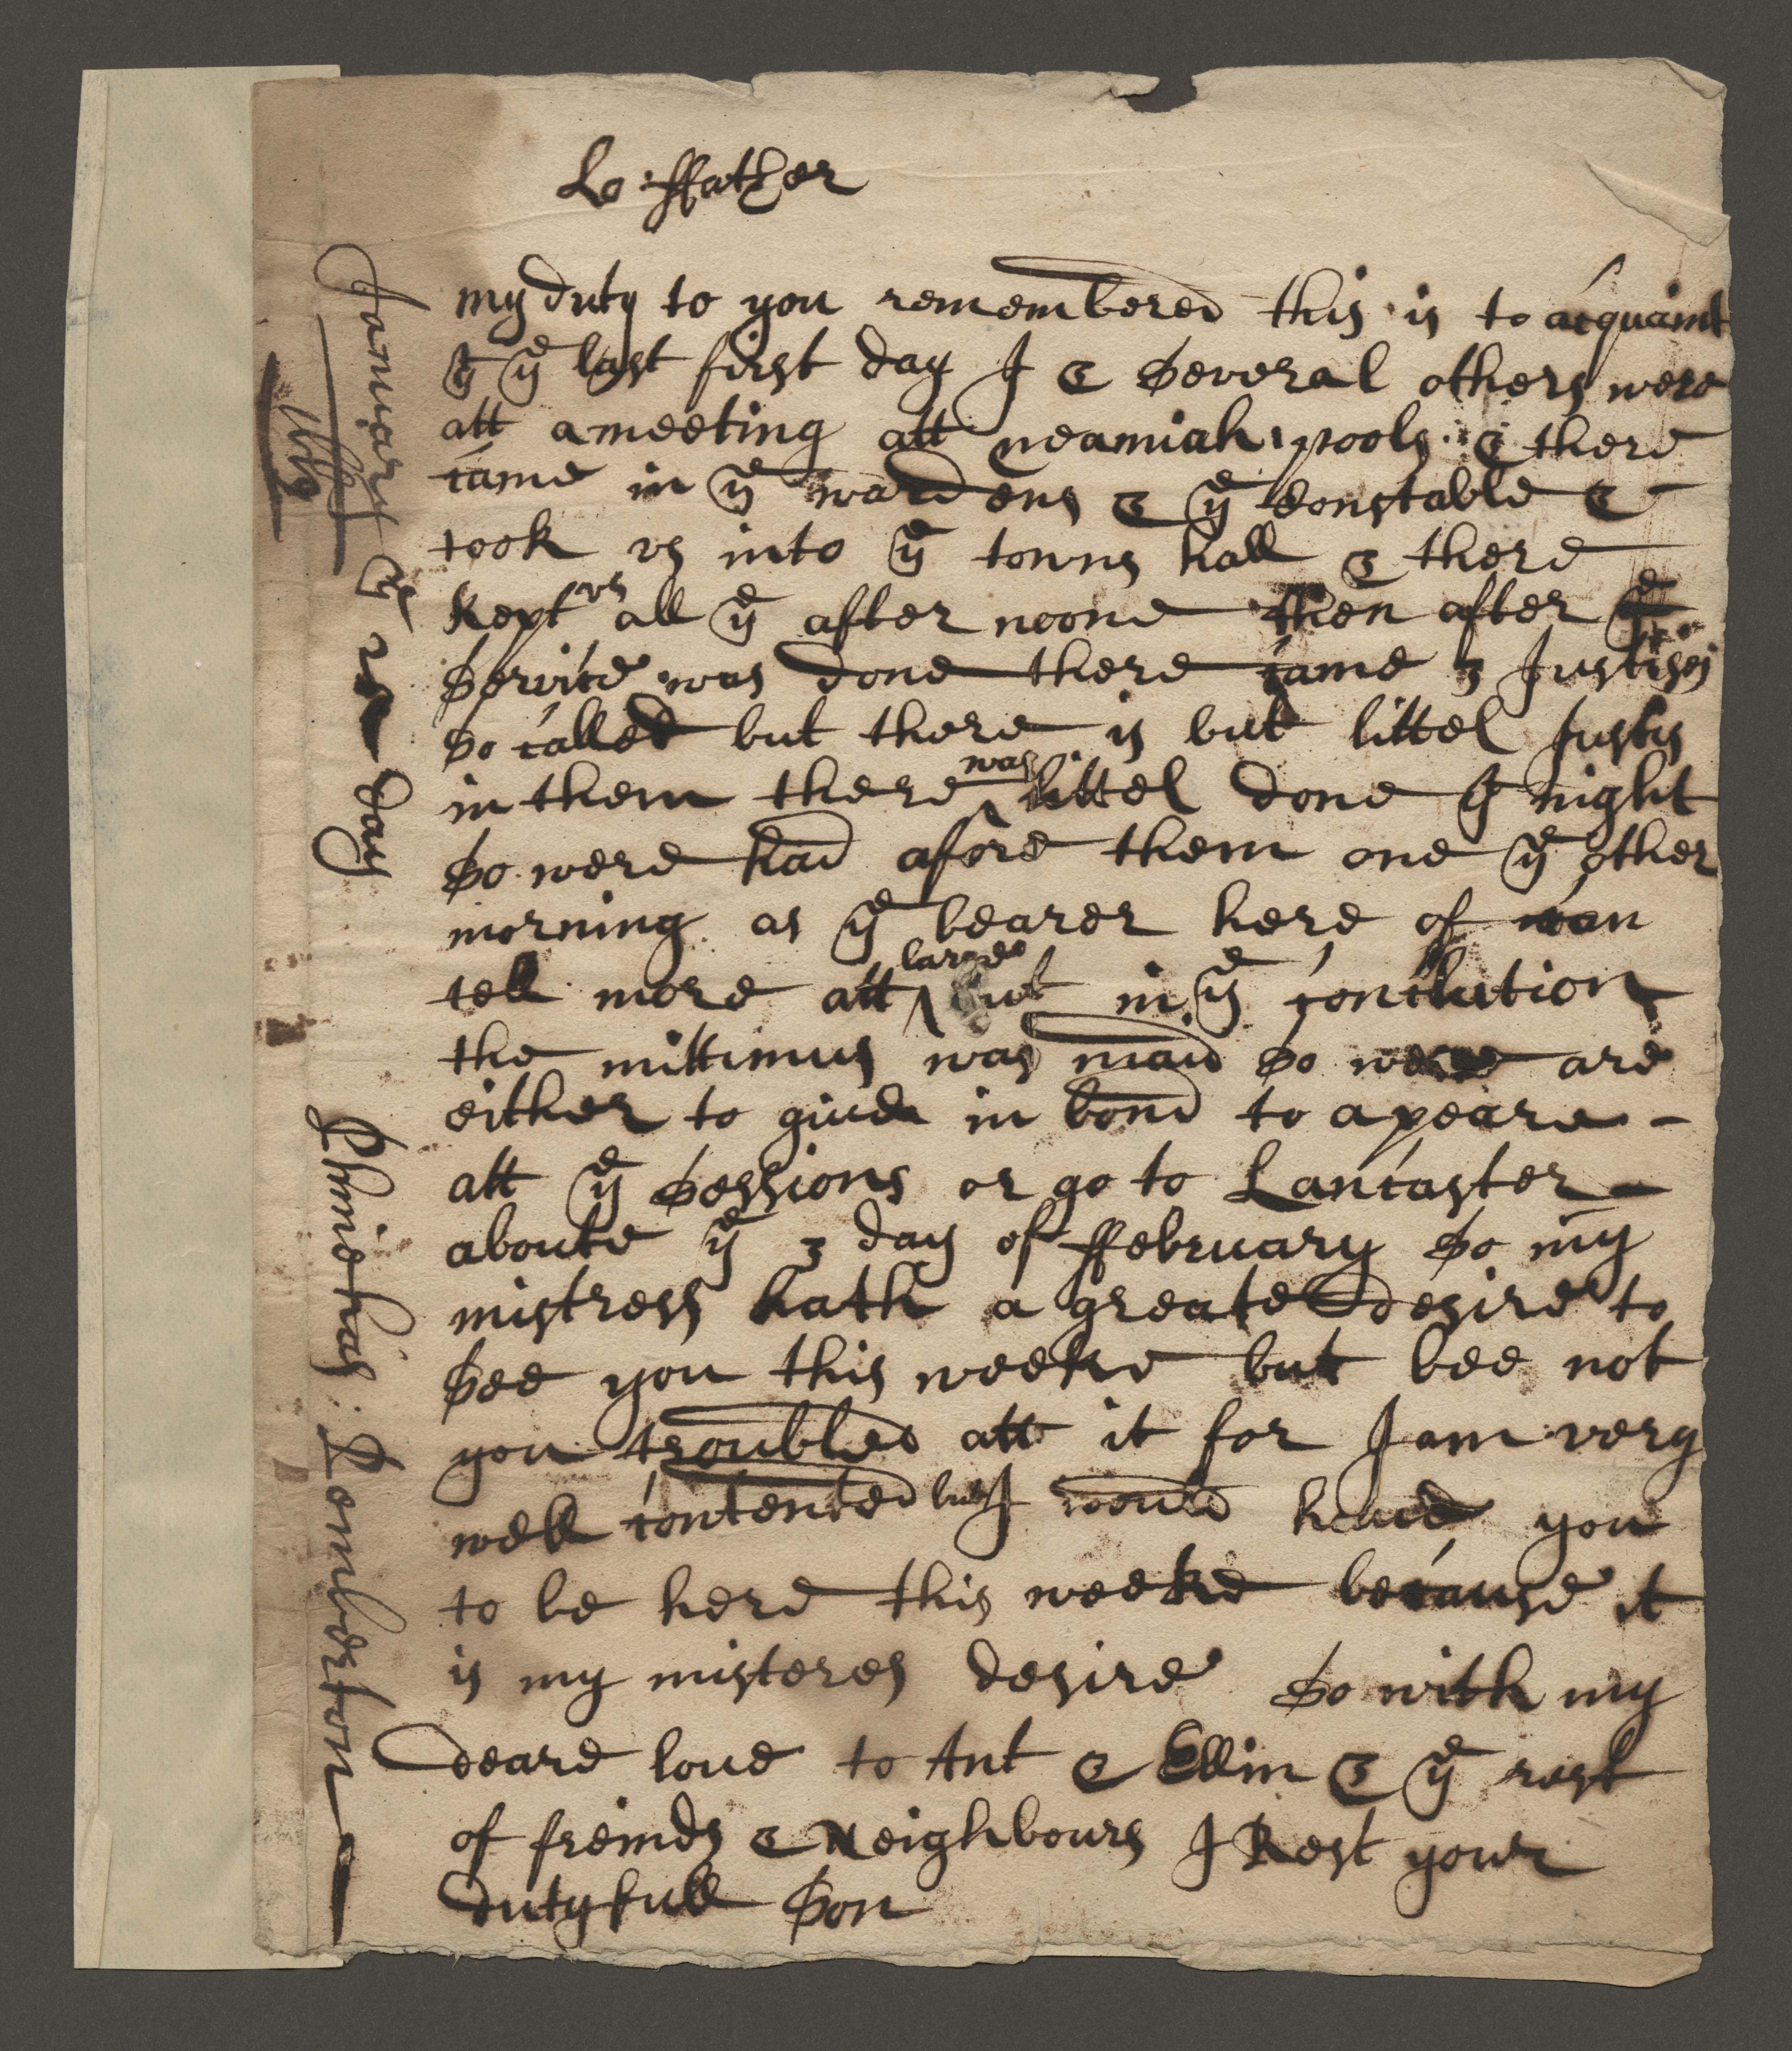 Lo: ffather
my duty to you remembered this is to acquaint
yt ye last first day I & Several others were
att a meeting att neamiah pools & there
came in ye wardens & ye Constable &
took us into ye towns hall & there
kept us all ye after noone then after ye
Service was done there came 3 Justises
so called but there is but littel Justis
in them there was littel done yt night
so were had afore them one ye other
morning as ye bearer here of can
tell more att large but in ye conclution
the mittimus was maid so wee are
either to give in bond to apeare -
att ye Sessions or go to Lancaster
aboute ye 3 day of ffebruary so my
mistress hath a greate desire to
See you this weeke but bee not
you troubled att it for I am very
well contented but I would have you
to be here this weeke because it
is my misteres desire So with my
deare love to Ant & Ellin & ye rest
of freinds & Neighbours I Rest your
dutyfull Son
January ye day
Phinehas: Pemberton